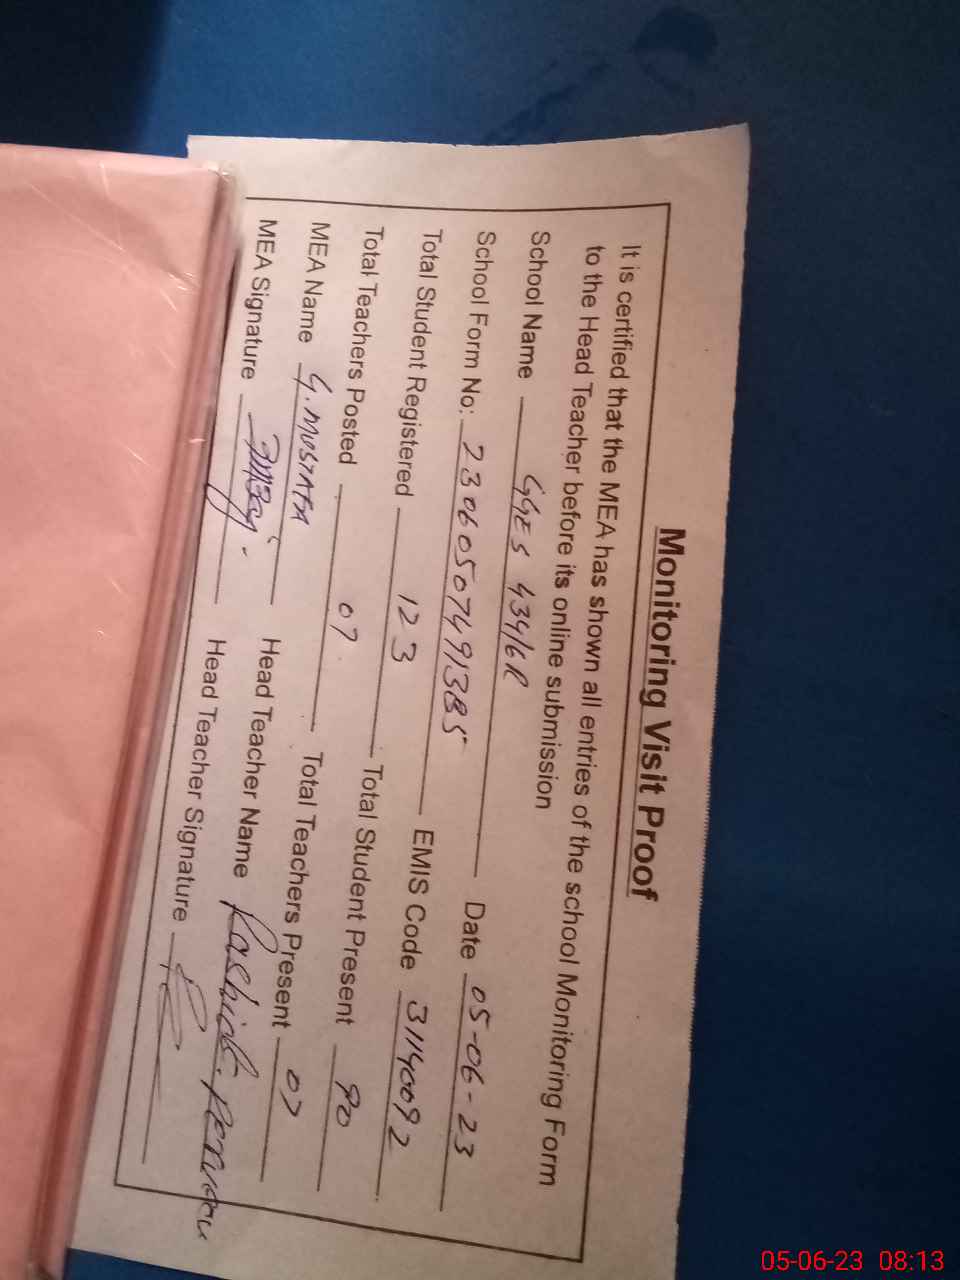 Monitoring Visit Proof
It is certified that the MEA has shown all entries of the school Monitoring Form
to the Head Teacher before its online submission
School Name GGES 434/6R
School Form No: 2306050749138S Date 05-06-23
Total Student Registered 123 EMIS Code 31140092
Total Teachers Posted 07 Total Student Present 90
MEA Name G. MUSTAFA Total Teachers Present 07
MEA Signature Head Teacher Name Rashida Perveen
Head Teacher Signature
05-06-23 08:13